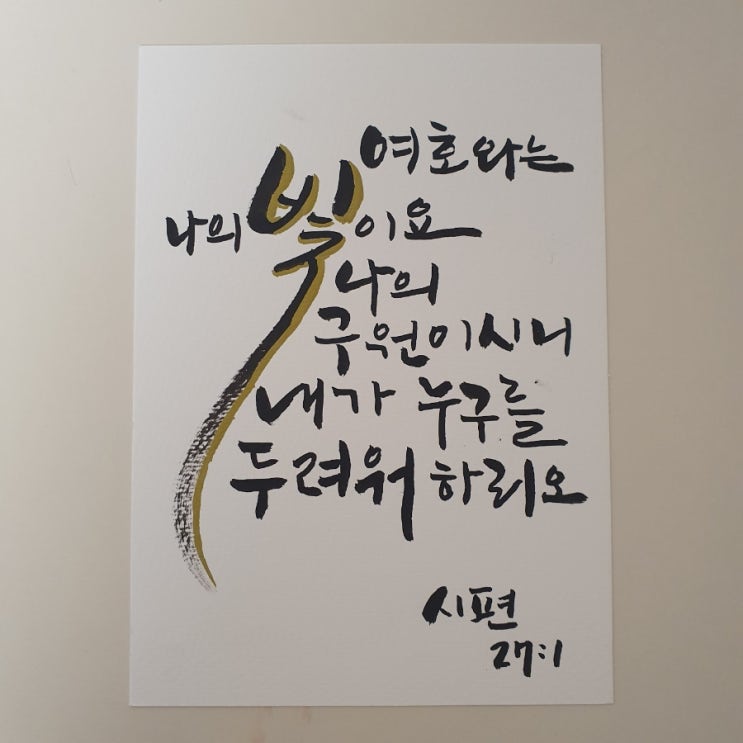 여호와는
나의 빛이요
나의
구원이시니
내가 누구를
두려워 하리오
시편
27:1